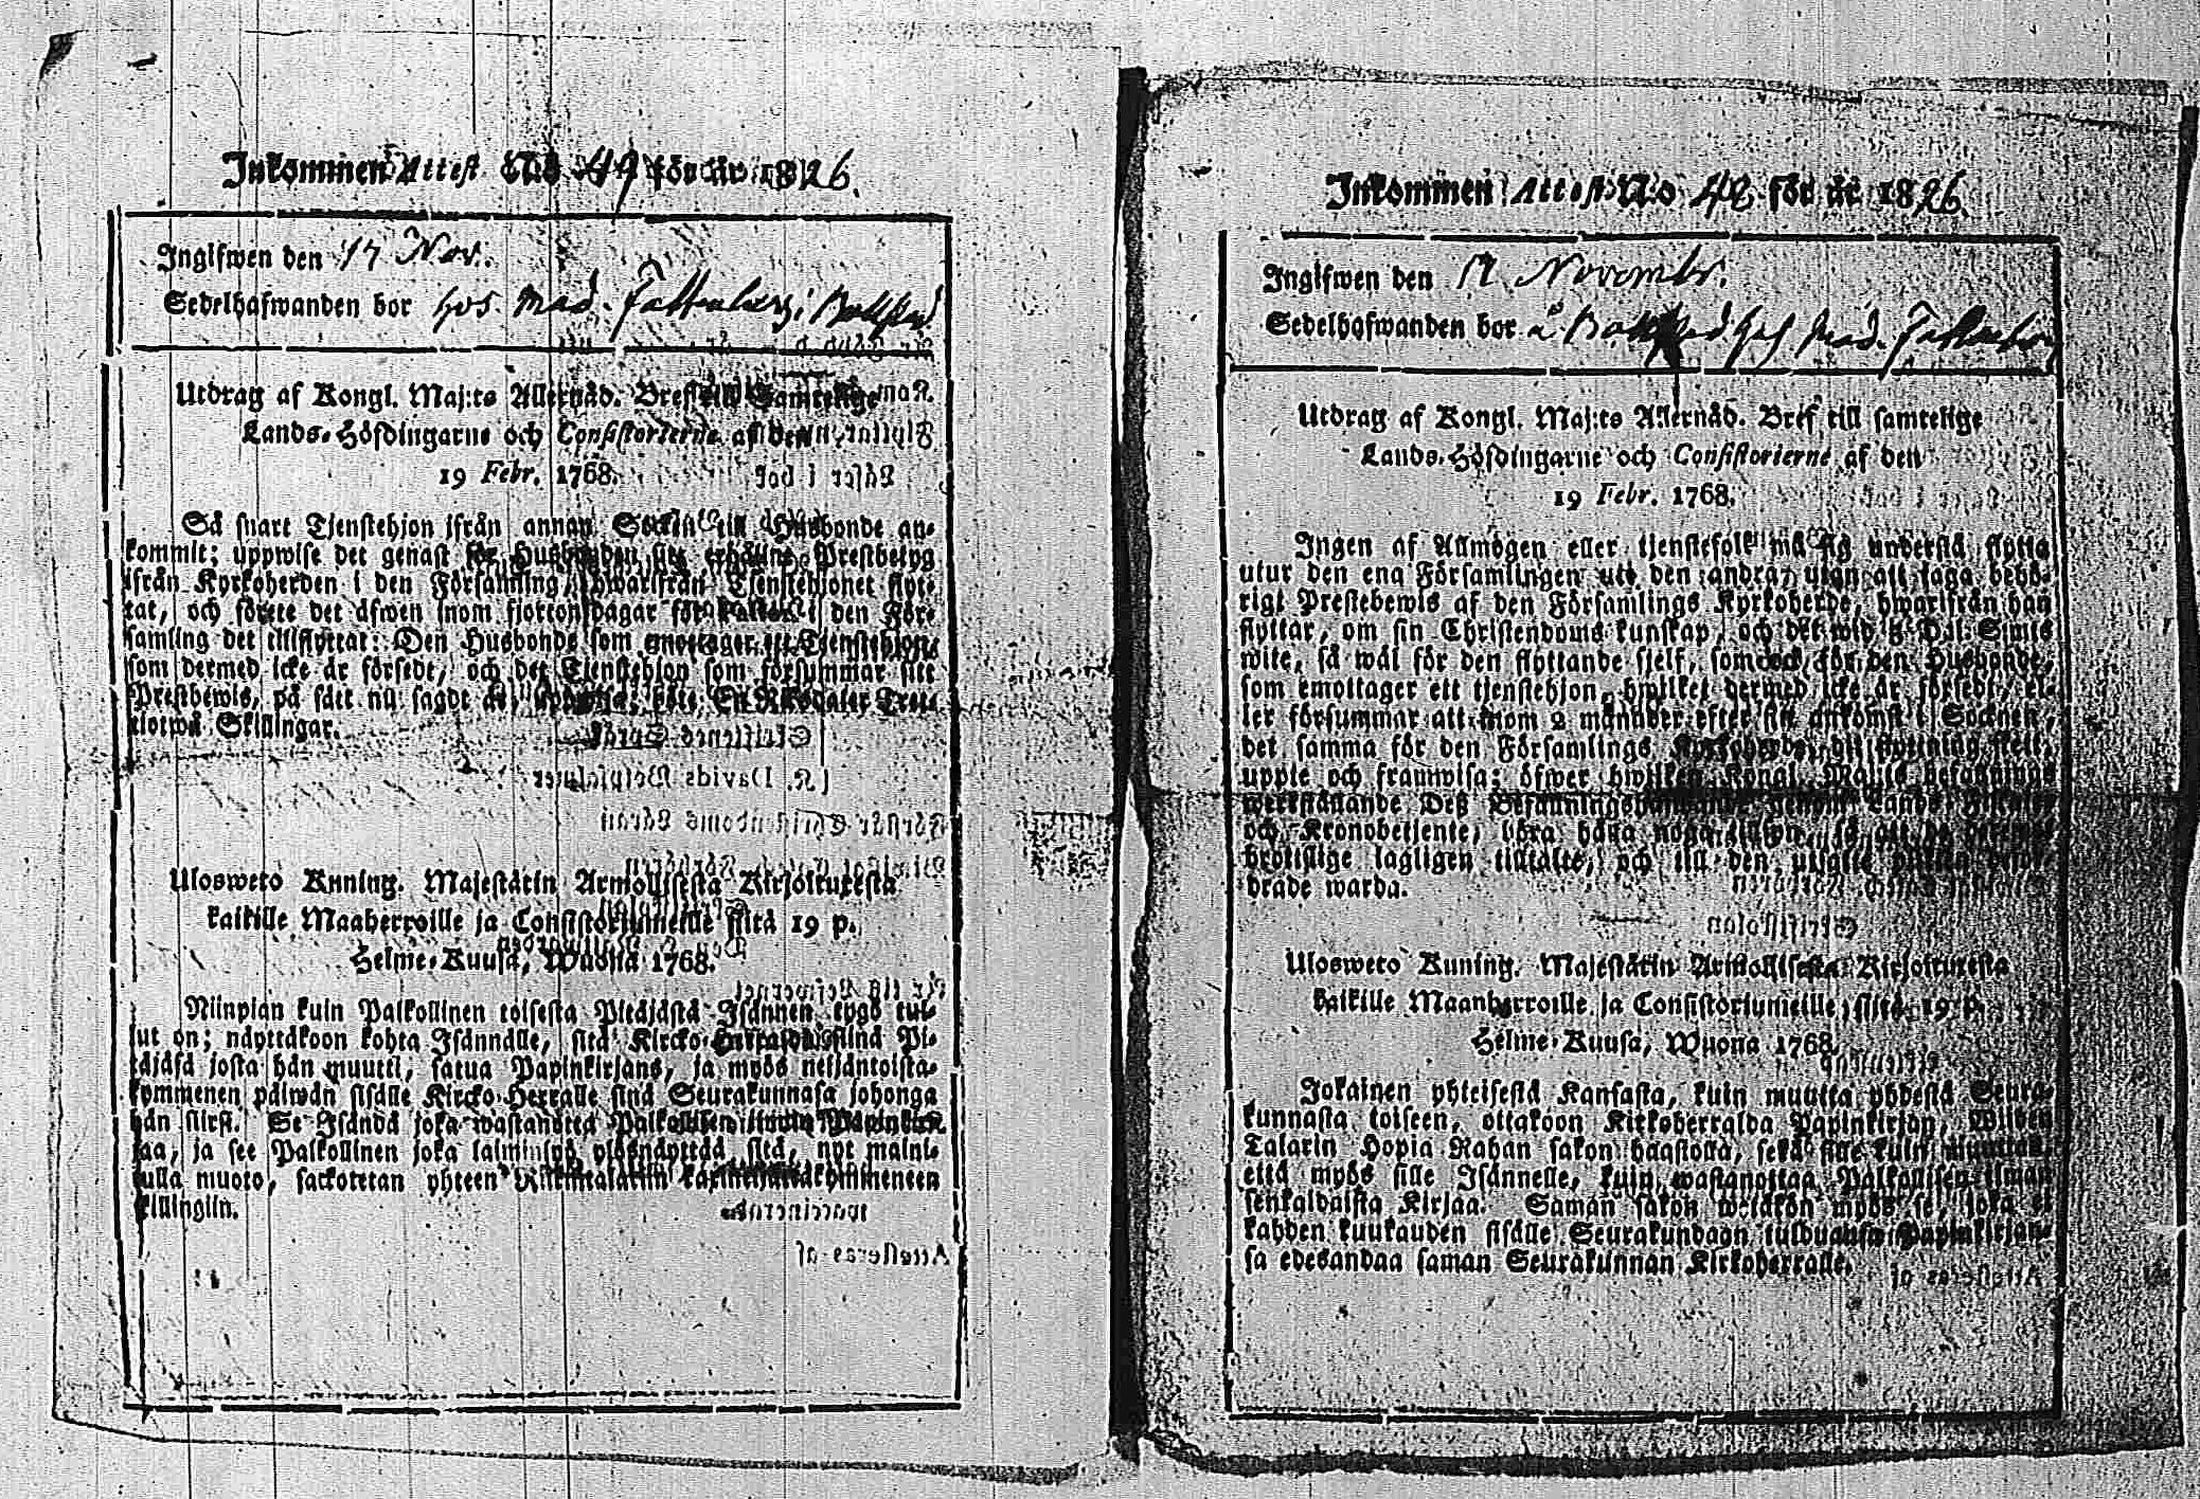 Inkommen Attest No 49 för år 1826.
Ingifwen den 17 Nov.
Sedelhafwanden bor hos Mad.
Utdrag af Kongl. Maj:ts Allernåd. Bref till Samtelige
Lands-Höfdingarne och Consistorierne af den
19 Febr. 1768.
Så snart Tjenstehjon ifrån annan Sockn till Husbonde an-
kommit; uppwise det genast för Husbonden sitt erhållne Prestbetyg
ifrån Kyrkoherden i den Församling, hwarifrån Tjenstehjonet flyt-
tat, och förete det äfwen inom fjorton dagar för Pastor i den För-
samling det tillflyttat: Den Husbonde som emottager ett Tjenstehjon,
som dermed icke är försedt, och det Tjenstehjon som försummar sitt
Prestbewis, på sätt nu sagdt är, böte En Riksdaler Tret-
tiotwå Skillingar.
Ulosweto Kuning. Majestätin Armollisesta Kirjoituxesta
kaikille Maaherroille ja Consistoriumeille siitä 19 p.
Helme-Kuusa, Wuonna 1768.
Niinpian kuin Palkollinen toisesta Pitäjästä Isännen tygö tul-
lut on; näyttäkoon kohta Isännälle, sitä Kircko-Herralda siinä Pi-
täjäsä josta hän muutti, saatua Papinkirjans, ja myös neljäntoista-
kymmenen päiwän sisälle Kircko-Herralle siinä Seurakunnasa johonga
hän siirsi. Se Isändä joka wastanottá Palkollisen ilman Papinkir-
jaa, ja see Palkollinen joka laiminlyö ylösnäyttää sitä, nyt maini-
tulla muoto, sackotetan yhteen Rikintalariin kaxineljättäkymmeneen
killingiin.
Inkommen Attest No 48 för år 1826.
Ingifwen den 17 Novembr.
Sedelhafwanden bor å hos Mad.
Utdrag af Kongl. Maj:ts Allernåd. Bref till samtelige
Lands-Höfdingarne och Consistorierne af den
19 Febr. 1768.
Ingen af Allmogen eller tjenstefolk må sig understå flytta
utur den ena Församlingen uti den andra, utan att taga behö-
rigt Prestebewis af den Församlings Kyrkoherde, hwarifrån han
flyttar, om sin Christendoms kunskap, och det wid 3 Dal: Smits
wite, så wäl för den flyttande sjelf, som ock för den Husbonde,
som emottager ett tjenstehjon, hwilket dermed icke är försedt, el-
ler försummar att inom 2 månader efter sin ankomst i Socknen,
det samma för den Församlings Kyrkoherde, dit flyttning skett,
uppte och framwisa; öfwer hwilken Kongl. Maj:ts befallnings
werkställande Deß Befallningshafwande genom Lands Fiscaler
och Kronobetjente, böra hålla noga tillsyn, så att de deremot
brottslige lagligen tilltalte, och till den utsatte plikten beför-
drade warda.
Ulosweto Kuning. Majestätin Armollisesta Kirjoituxesta
kaikille Maanherroille ja Consistoriumeille, siitä 19 p.
Helme-Kuusa, Wuona 1768.
Jokainen yhteisestä Kansasta, kuin muutta yhdestä Seura-
kunnasta toiseen, ottakoon Kirkoherralda Papinkirjan, Wiiden
Talarin Hopia Rahan sakon haastolla, sekä sille kuin muuttaa,
että myös sille Isännelle, kuin wastanottaa Palkollisen ilman
senkaldaista Kirjaa. Saman sakon wetäkön myös se, joka ei
kahden kuukauden sisälle Seurakundaan tulduansa Papinkirjan-
sa edesandaa saman Seurakunnan Kirkoherralle.